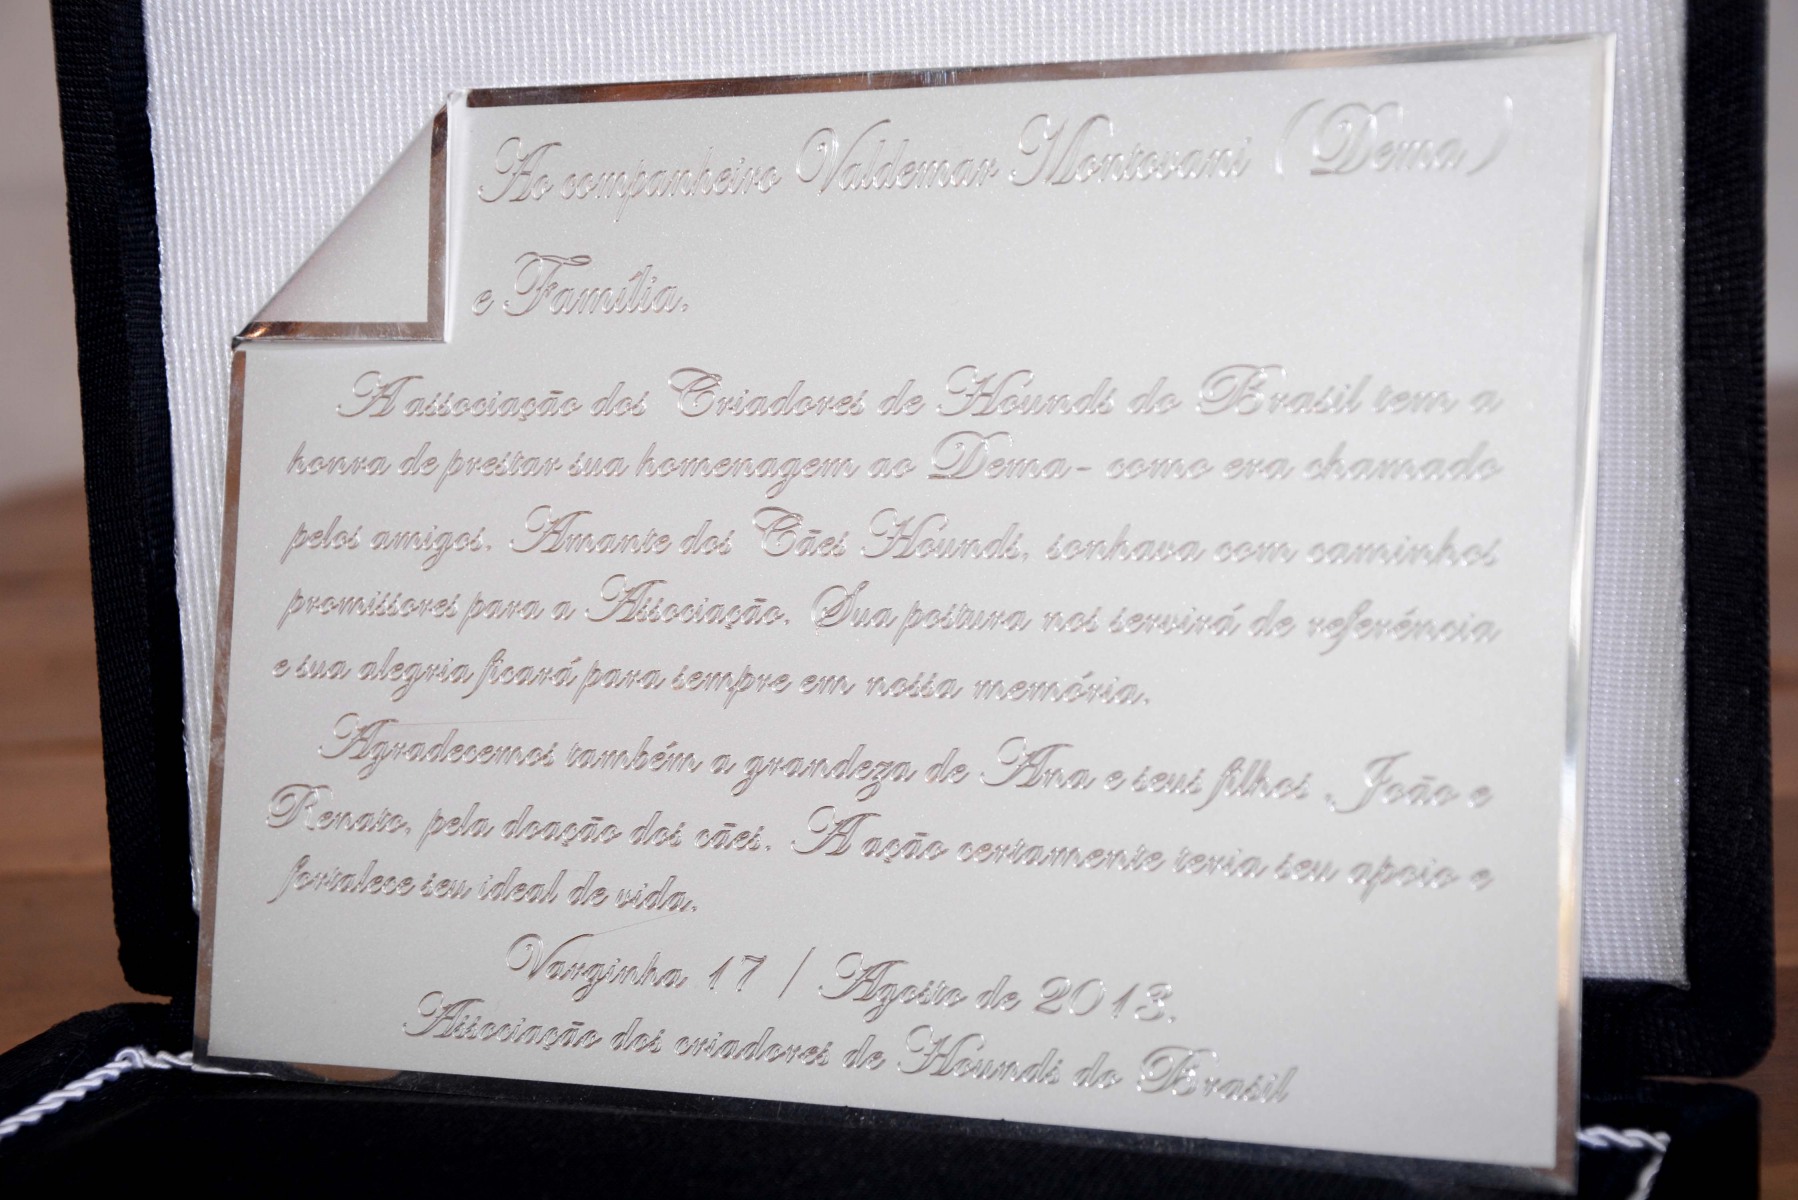 Ao companheiro Valdemar Montovani (Dema)
e Família.
A associação dos Criadores de Hóunds do Brasil tem a
honra de prestar sua homenagem ao Dema- como era chamado
pelos amigos. Amante dos Cães Hóunds, sonhava com caminhos
promissores para a Associação. Sua postura nos servirá de referência
e sua alegria ficará para sempre em nossa memória.
Agradecemos também a grandeza de Ana e seus filhos , João e
Renato, pela doação dos cães. A ação certamente teria seu apoio e
fortalece seu ideal de vida.
Varginha 17 / Agosto de 2013.
Associação dos criadores de Hóunds do Brasil